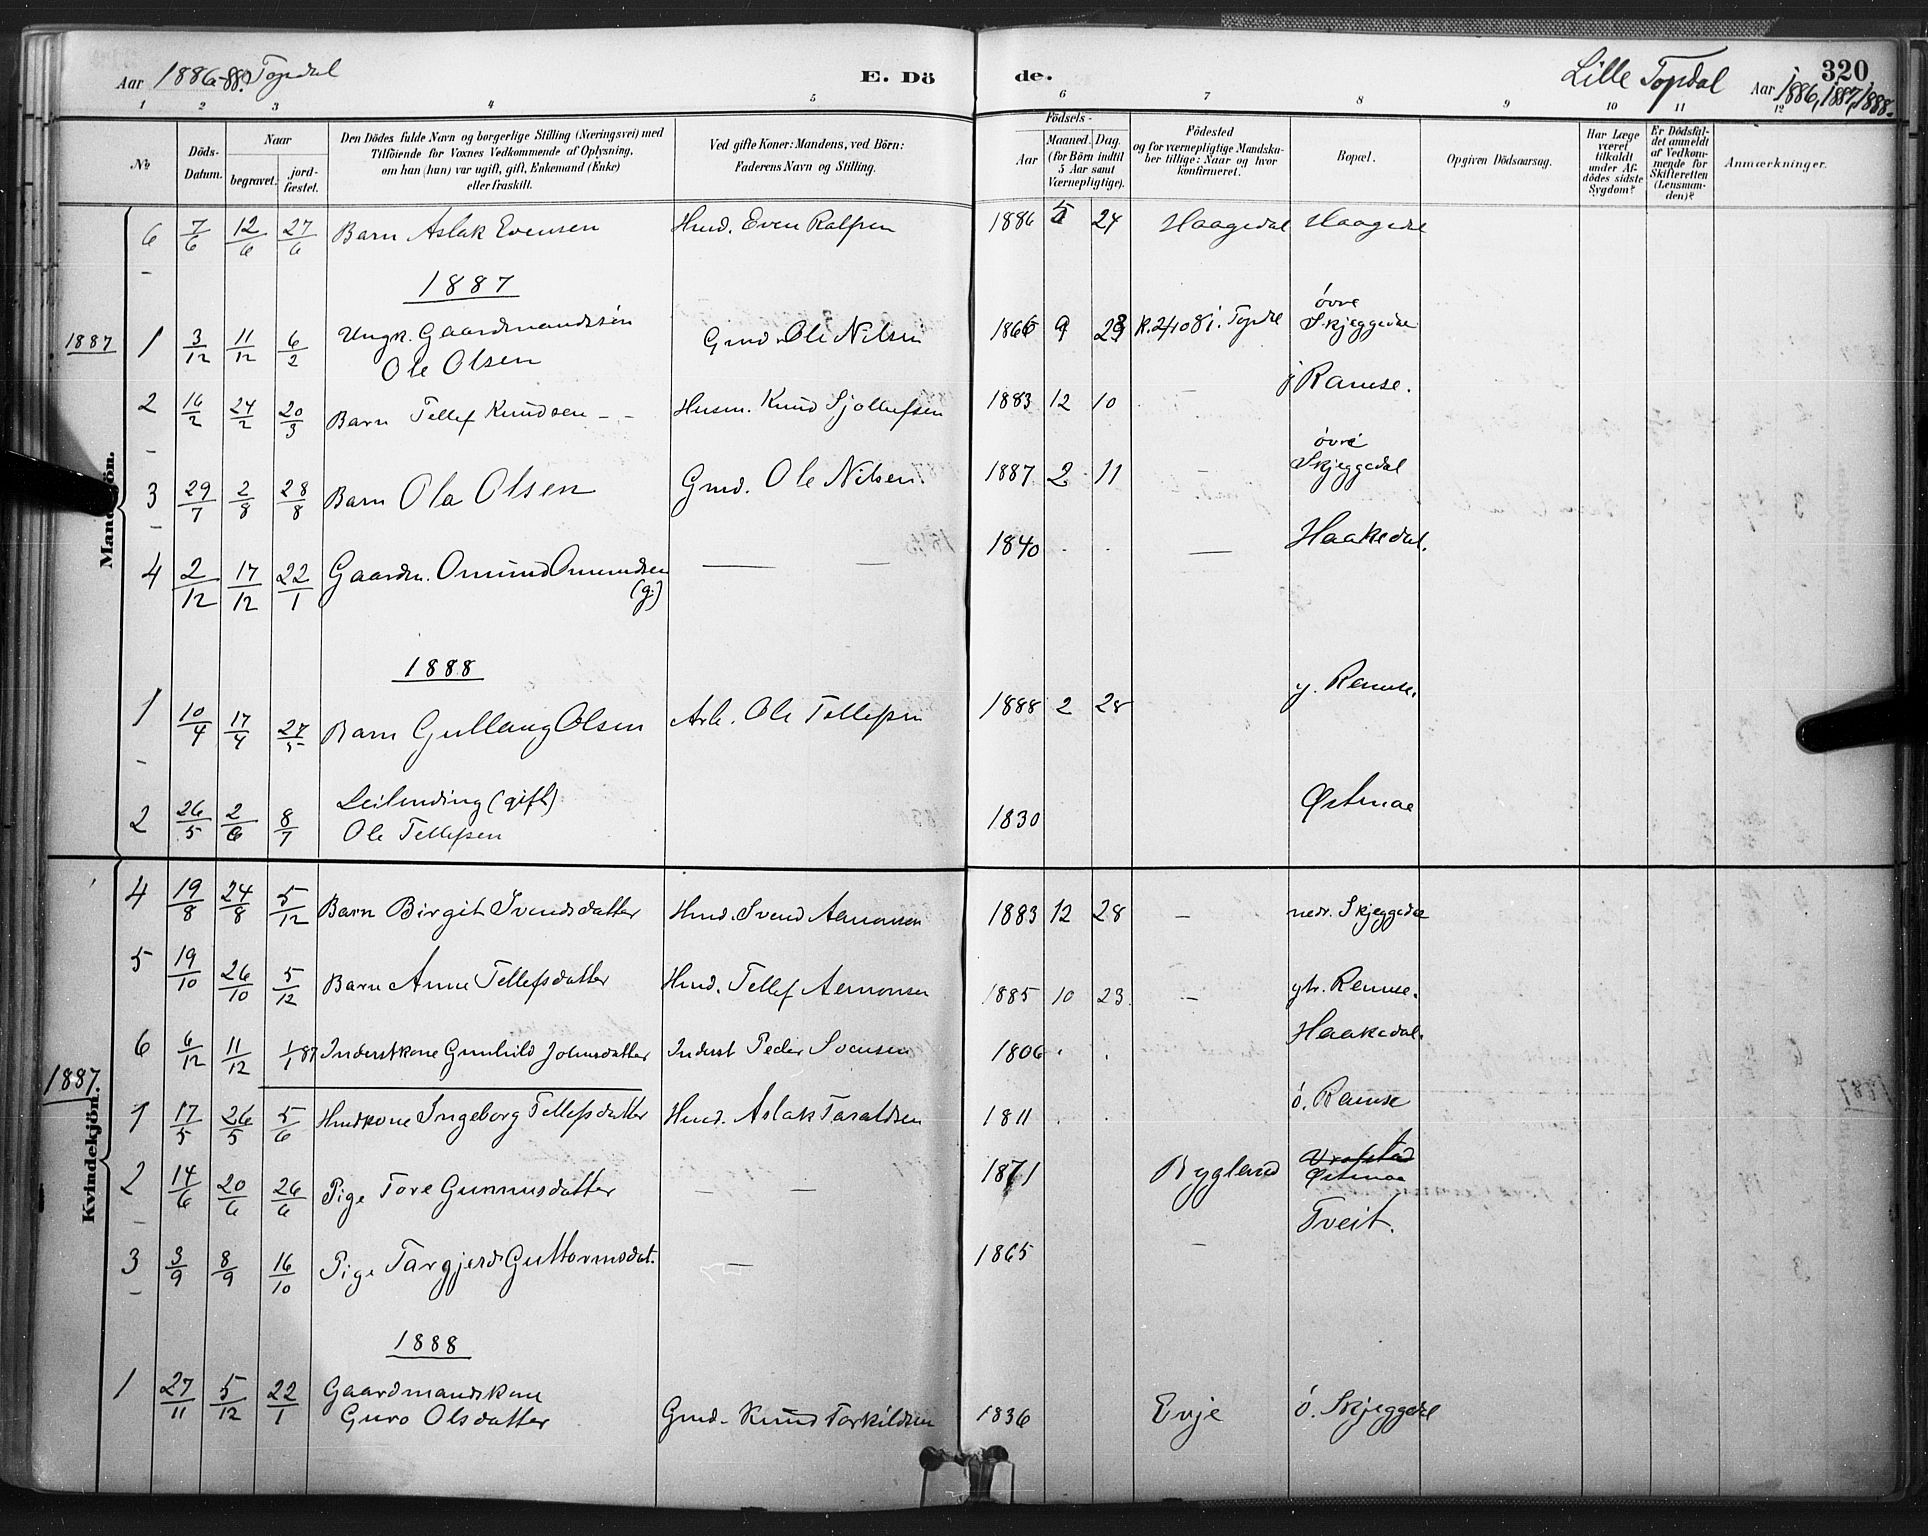 Aar 1886-88. Topdal E. Dö de. Lille Topdal Aar 1886, 1887, 1888. 320.
1 2 3 4 5 6 7 8 9 10 11 12
No Döds-Datum. Naar begravet. jordfæstet. Den Dödes fulde Navn og borgerlige Stilling (Næringsvei) med Tilföiende for Voxnes Vedkommende af Oplysning, om han (hun) var ugift, gift, Enkemand (Enke) eller fraskilt. Ved gifte Koner: Mandens, ved Börn: Faderens Navn og Stilling. Födsels- Aar Maaned. Dag. (for Börn indtil 5 Aar samt Værnepligtige). Födested og for værnepligtige Mandskaber tillige: Naar og hvor konfirmeret. Bopæl. Opgiven Dödsaarsag. Har Læge været tilkaldt under Afdödes sidste Sygdom? Er Dödsfaldet anmeldt af Vedkommende for Skifteretten (Lensmanden)? Anmærkninger.
Mandkjön.
6 7/6 12/6 27/6 Barn Aslak Evensen Hmd. Even Rolfsen 1886 5 24 Haagedal Haagedal
1887
1887 1 3/12 11/12 6/2 Ungk. Gaardmandssön Gmd. Ole Nilsen 1866 9 23 K. 2/10 81. Topdl övre Skjeggedal
Ole Olsen
2 16/2 24/2 20/3 Barn Tellef Knudsen - - Husm. Knud Sjollefsen 1883 12 10 - Ramse.
3 29/7 2/8 28/8 Barn Ola Olsen Gmd. Ole Nilsen 1887 2 11 - övre Skjeggedal
4 2/12 17/12 22/1 Gaardm. Omund Omundsen — — 1840 — Haakedal.
(g.)
1888
1 10/4 17/4 27/5 Barn Gullaug Olsen Arb. Ole Tellefsen 1888 2 28 y. Ramse.
2 26/5 2/6 8/7 Leilending (gift) 1830 Østmoe
Ole Tellefsen
Kvindekjön.
4 19/8 24/8 5/12 Barn Birgit Svendsdatter Hmd. Svend Aamonsen 1883 12 28 - nedr. Skjeggedal
5 19/10 26/10 5/12 Barn Anne Tellefsdatter Hmd. Tellef Aamonsen 1885 10 23. - ytr. Ramse.
6 6/12 11/12 1/1 87 Inderstkone Gunhild Johnsdatter Inderst Peder Svensen 1806 Haakedal.
1887. 1 17/5 26/5 5/6 Hmdkone Ingeborg Tellefsdatter Hmd. Aslak Taraldsen 1811 ö. Ramse
2 14/6 20/6 26/6 Pige Tore Gunnusdatter — — 1871 Bygland Vrolstad Østmoe
3 3/9 8/9 16/10 Pige Targjerd Guttormsdat. — 1865 - Tveit.
1888
1 27/11 5/12 22/1 Gaardmandskone
Guro Olsdatter Gmd. Knud Torkildsen 1836 Evje ö. Skjeggedal